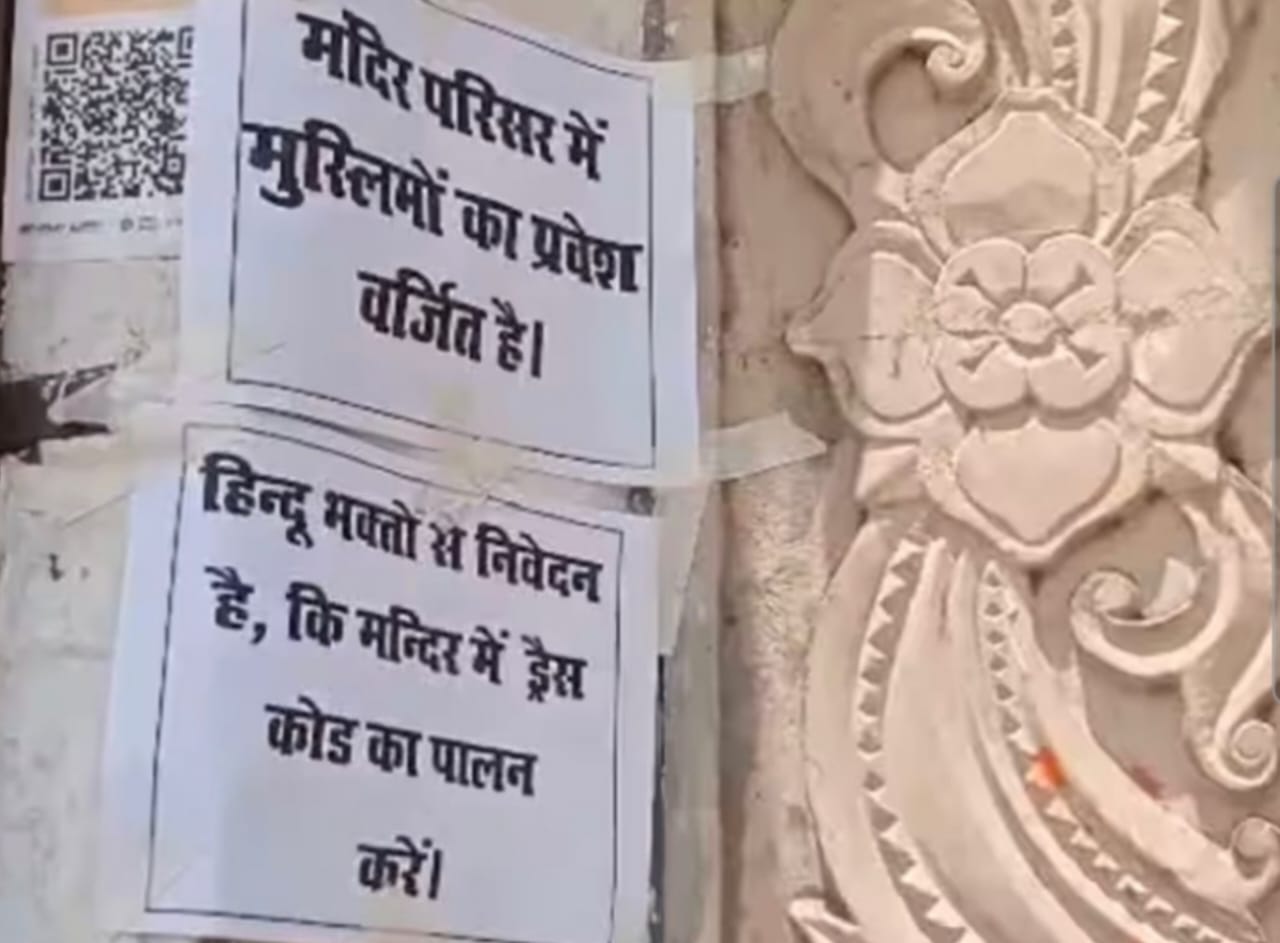 मंदिर परिसर में
मुस्लिमों का प्रवेश
वर्जित है।
हिन्दू भक्तो स निवेदन
है, कि मन्दिर में ड्रैस
कोड का पालन
करें।